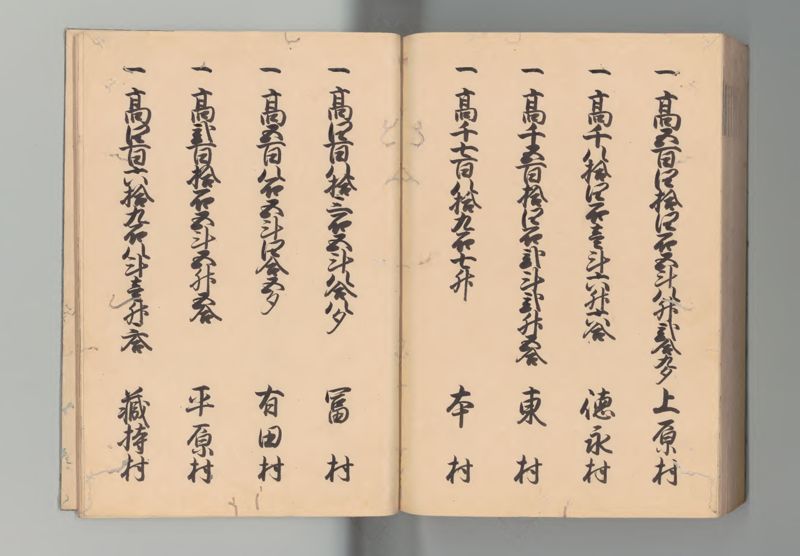 一 高五百四拾四石五斗八升弐合九夕 上原村
一 高千八拾四石壱斗六升六合 徳永村
一 高千五百拾四石弐斗弐升五合 東村
一 高千七百八拾九石七升 本村
一 高四百八拾三石五斗八合八夕 冨村
一 高五百八石五斗四合五夕 有田村
一 高弐百拾石五斗五升五合 平原村
一 高四百六拾九石八斗壱升六合 蔵持村